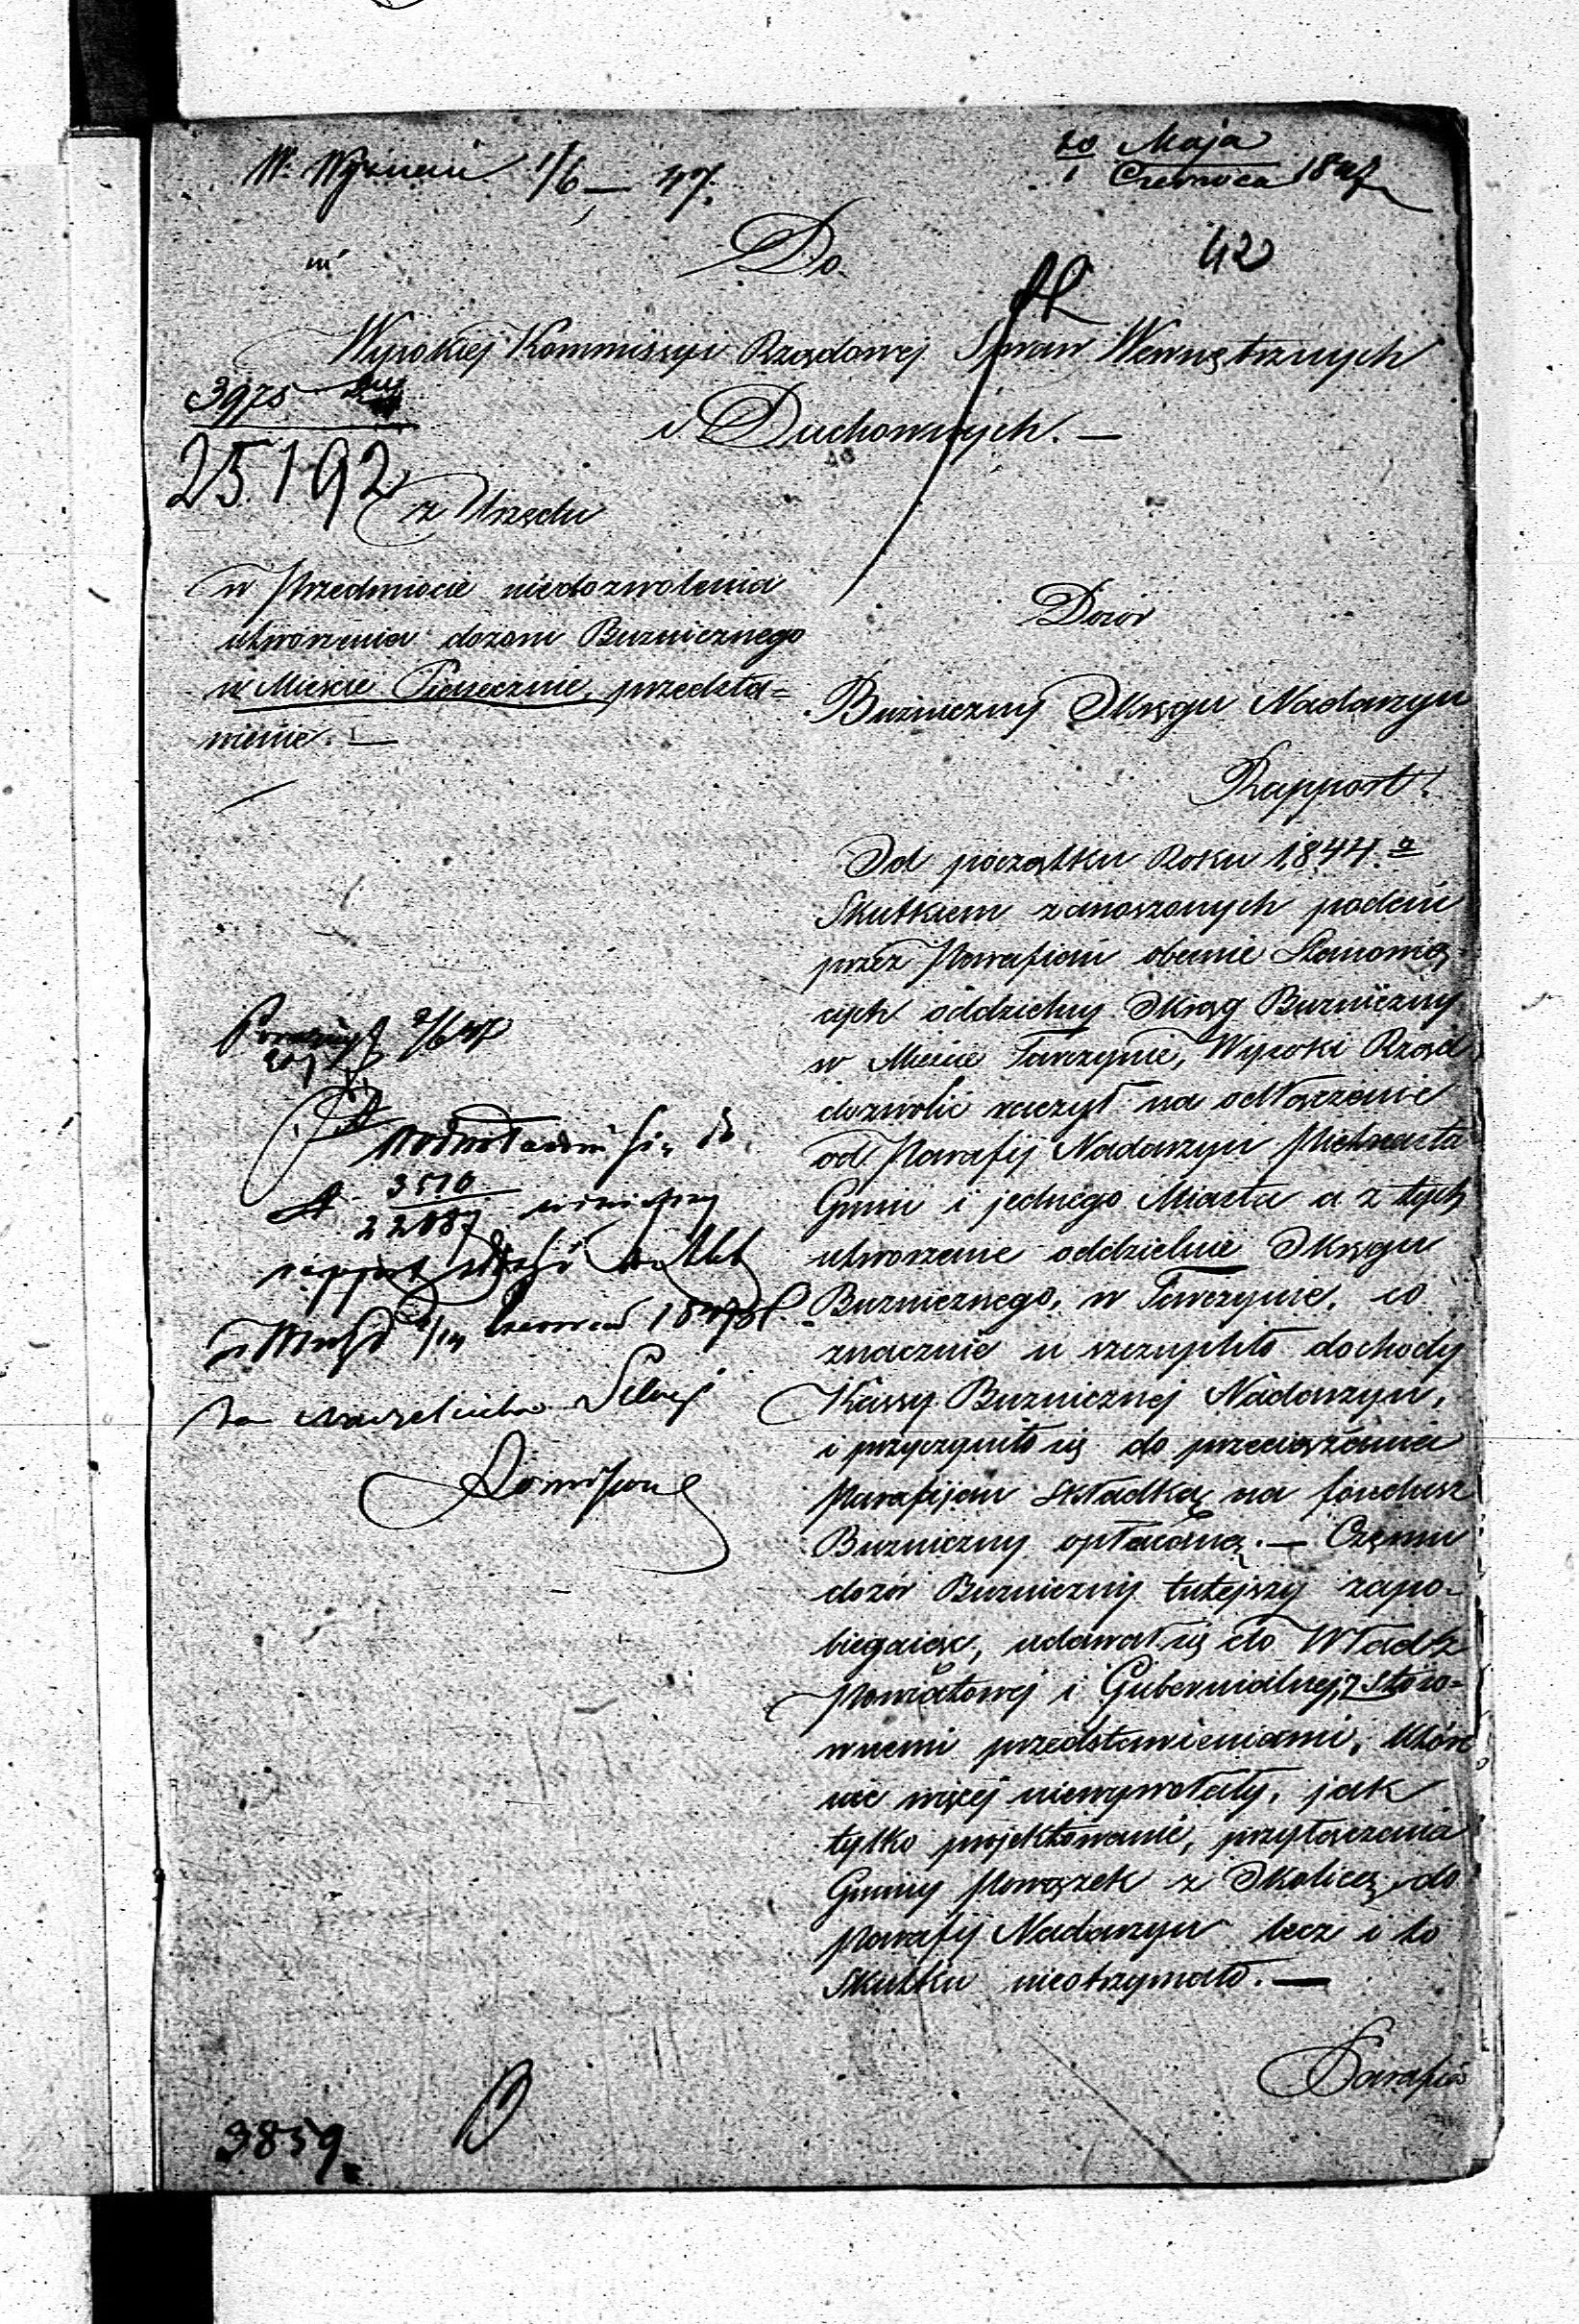 W. Wyznań 1/6 — 47.
20 Maja
1 Czerwca 1847
42
Do
Wysokiej Kommissyi Rządowej Spraw Wewnętrznych
i Duchownych. —
3975
25.192
z Urzędu
w Przedmiocie niedozwolenia
utworzenia dozoru Buznicznego
w Mieście Piasecznie, przedsta=
wienie. —
Dozór
Buzniczny Okręgu Nadarzyn
Rapport.
Od początku Roku 1844.º
Skutkiem zanoszonych podań
przez Parafian obecnie Stanowią
cych oddzielny Okrąg Buzniczny
w Mieście Tarczynie, Wysoki Rząd
dozwolić raczył na odłączenie
od Parafij Nadarzyn
Gmin i jednego Miasta a z tych
utworzenie oddzielnie Okręgu
Buznicznego, w Tarczynie, co
znacznie u szczupliło dochody
Kassy Buznicznej Nadarzyn,
i przyczyniło się do przeciążenia
Parafijan składką na fundusz
Buzniczny opłacaną. — Czemu
dozór Buzniczny tutejszy zapo-
biegając, udawał się do Władz
Powiatowej i Gubernialnej, z stoso-
wnemi przedstawieniami, które
nic więcej niewywołały, jak
tylko projektowanie, przyłączenia
Gminy Powązek z Okolicą, do
Parafij Nadarzyn lecz i to
Skutku nieotrzymało. —
2/6 47
3510
22087
rapport
Czerwca 1847 r.
Za Naczelnika Sekcyi
Parafia
3859.